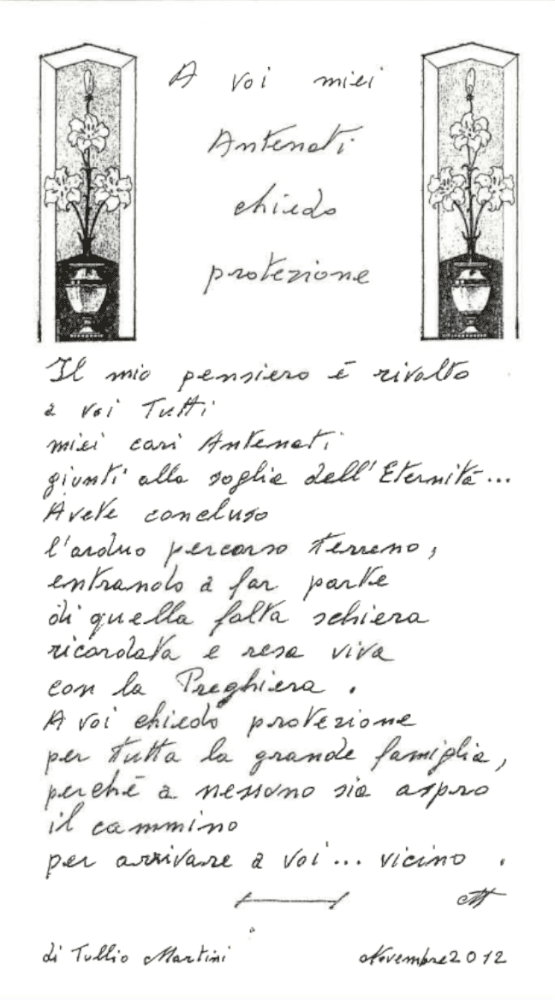 A voi miei
Antenati
chiedo
protezione
Il mio pensiero è rivolto
a voi Tutti
miei cari Antenati
giunti alla soglia dell'Eternità...
Avete concluso
l'arduo percorso terreno,
entrando a far parte
di quella folta schiera
ricordata e resa viva
con la Preghiera.
A voi chiedo protezione
per tutta la grande famiglia,
perché a nessuno sia aspro
il cammino
per arrivare a voi... vicino.
di Tullio Martini
Novembre 2012